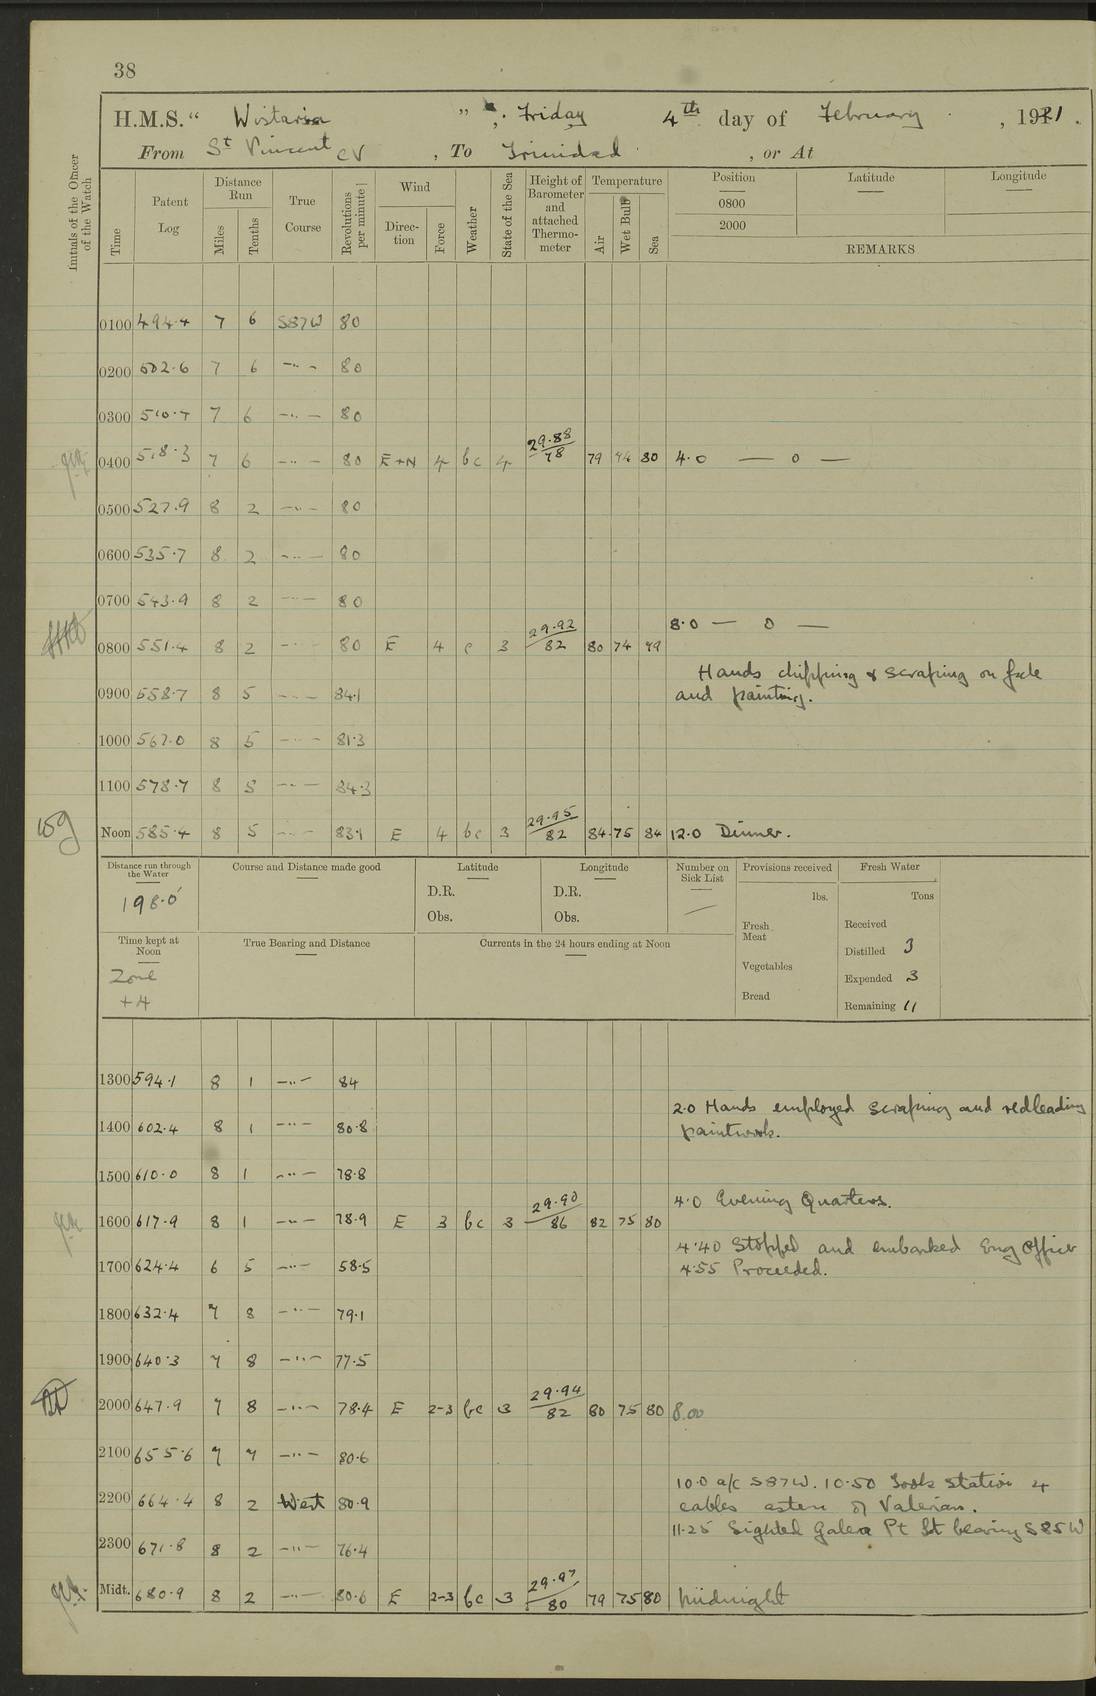 38
H.M.S. “ Wistaria ” , Friday 4th day of February , 1921 .
From St Vincent CV , To Trinidad , or At
Initials of the Officer of the Watch
Time Patent Log Distance Run Miles Tenths True Course Revolutions per minute Wind Direction Force Weather State of the Sea Height of Barometer and attached Thermometer Temperature Air Wet Bulb Sea Position Latitude Longitude
0800
2000
REMARKS
0100 494.4 7 6 S87W 80
0200 502.6 7 6 —〃— 80
0300 510.7 7 6 —〃— 80
0400 518.3 7 6 —〃— 80 E+N 4 bc 4 29.88/78 79 74 80 4.0 — 0 —
0500 527.9 8 2 —〃— 80
0600 535.7 8 2 —〃— 80
0700 543.9 8 2 —〃— 80
0800 551.4 8 2 —〃— 80 E 4 c 3 29.92/82 80 74 79 8.0 — 0 —
Hands chipping & scraping on fxle
0900 558.7 8 5 —〃— 84.1 and painting.
1000 567.0 8 5 —〃— 81.3
1100 578.7 8 5 —〃— 84.3
Noon 585.4 8 5 —〃— 83.1 E 4 bc 3 29.95/82 84 75 84 12.0 Dinner.
Distance run through the Water Course and Distance made good Latitude Longitude Number on Sick List Provisions received Fresh Water
198.0
D.R. D.R. lbs. Tons
Obs. Obs. —
Fresh Meat Received
Time kept at Noon True Bearing and Distance Currents in the 24 hours ending at Noon
Distilled 3
Zone +4
Vegetables Expended 3
Bread Remaining 11
1300 594.1 8 1 —〃— 84
2.0 Hands employed scraping and redleading
1400 602.4 8 1 —〃— 80.8 paintwork.
1500 610.0 8 1 —〃— 78.8
4.0 Evening Quarters.
1600 617.9 8 1 —〃— 78.9 E 3 bc 3 29.90/86 82 75 80
4.40 Stopped and embarked Eng Officer
1700 624.4 6 5 —〃— 58.5 4.55 Proceeded.
1800 632.4 7 8 —〃— 79.1
1900 640.3 7 8 —〃— 77.5
2000 647.9 7 8 —〃— 78.4 E 2-3 bc 3 29.94/82 80 75 80 8.00
2100 655.6 7 7 —〃— 80.6
10.0 a/c S87W. 10.50 Took station 4
2200 664.4 8 2 West 80.9 cables astern of Valerian.
11.25 Sighted Galera Pt Lt bearing S85W
2300 671.8 8 2 —〃— 76.4
Midt. 680.9 8 2 —〃— 80.6 E 2-3 bc 3 29.97/80 79 75 80 Midnight